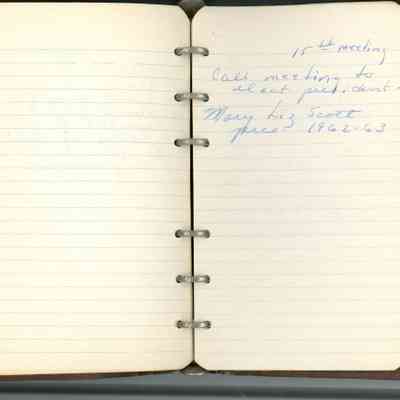 15th meeting
Call meeting to
elect president
Mary Liz Scott
pres 1962-63